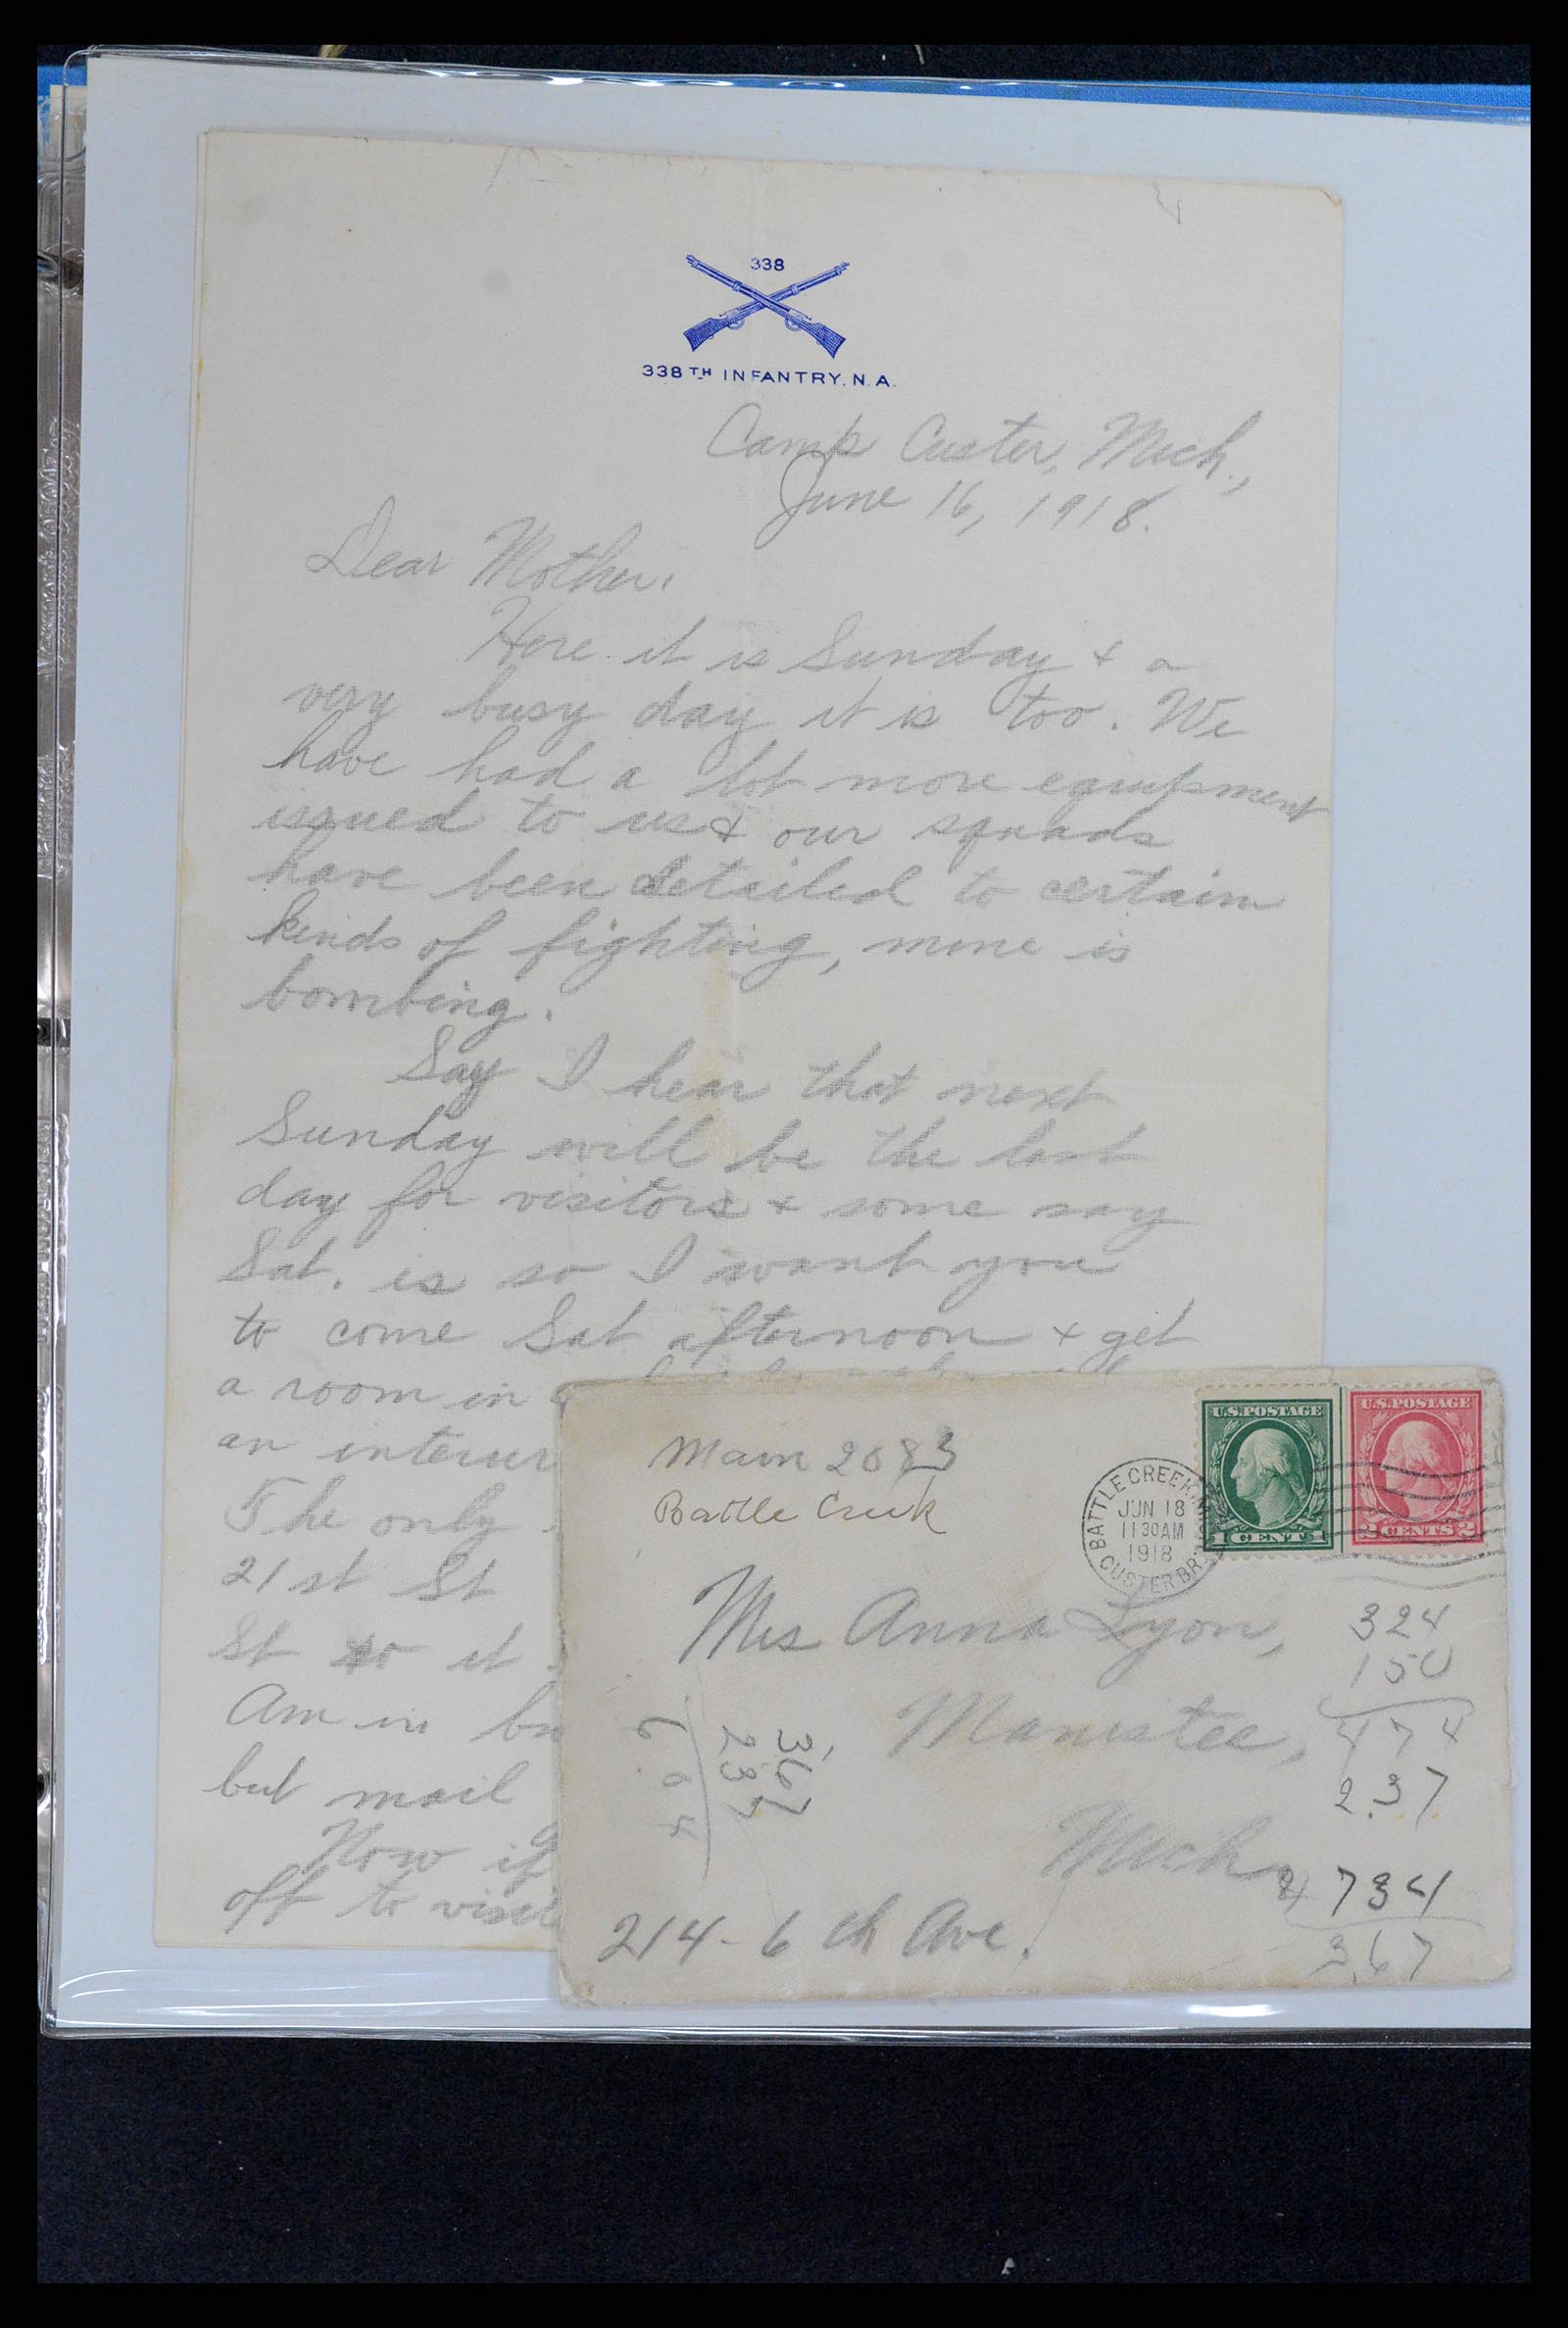 338
338TH INFANTRY, N.A.
Camp Custer, Mich.,
June 16, 1918.
Dear Mother,
Here it is Sunday + a
very busy day it is too. We
have had a lot more equipment
issued to us & our squads
have been detailed to certain
kinds of fighting, mine is
bombing.
Say I hear that next
Sunday will be the last
day for visitors + some say
Sat. is so I want you
to come Sat afternoon + get
a room in
an interur
The only
21st St
St so it
Am in
but mail
Now if
off to visit
Main 2083
Battle Creek
U.S. POSTAGE
1 CENT 1
U.S. POSTAGE
2 CENTS 2
BATTLE CREEK, MICH.
JUN 18
11 30 AM
1918
CUSTER BR.
Mrs Anna Lyon,
Manistee,
Mich
214 - 6 th Ave.
324
150
474
2.37
734
3.67
3.67
2.37
6.04